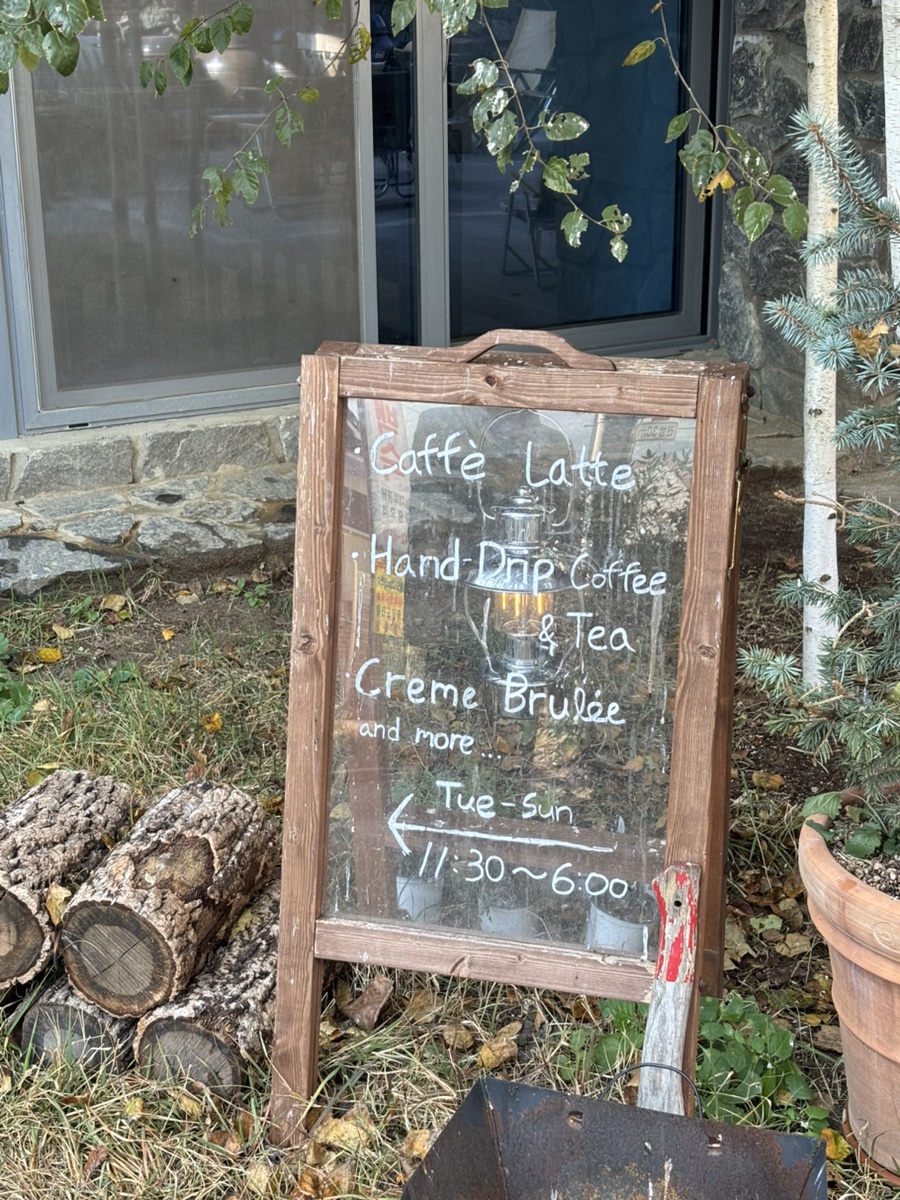 · Caffè Latte
· Hand-Drip Coffee
& Tea
· Creme Brulée
and more...
Tue-Sun
←
11:30~6:00